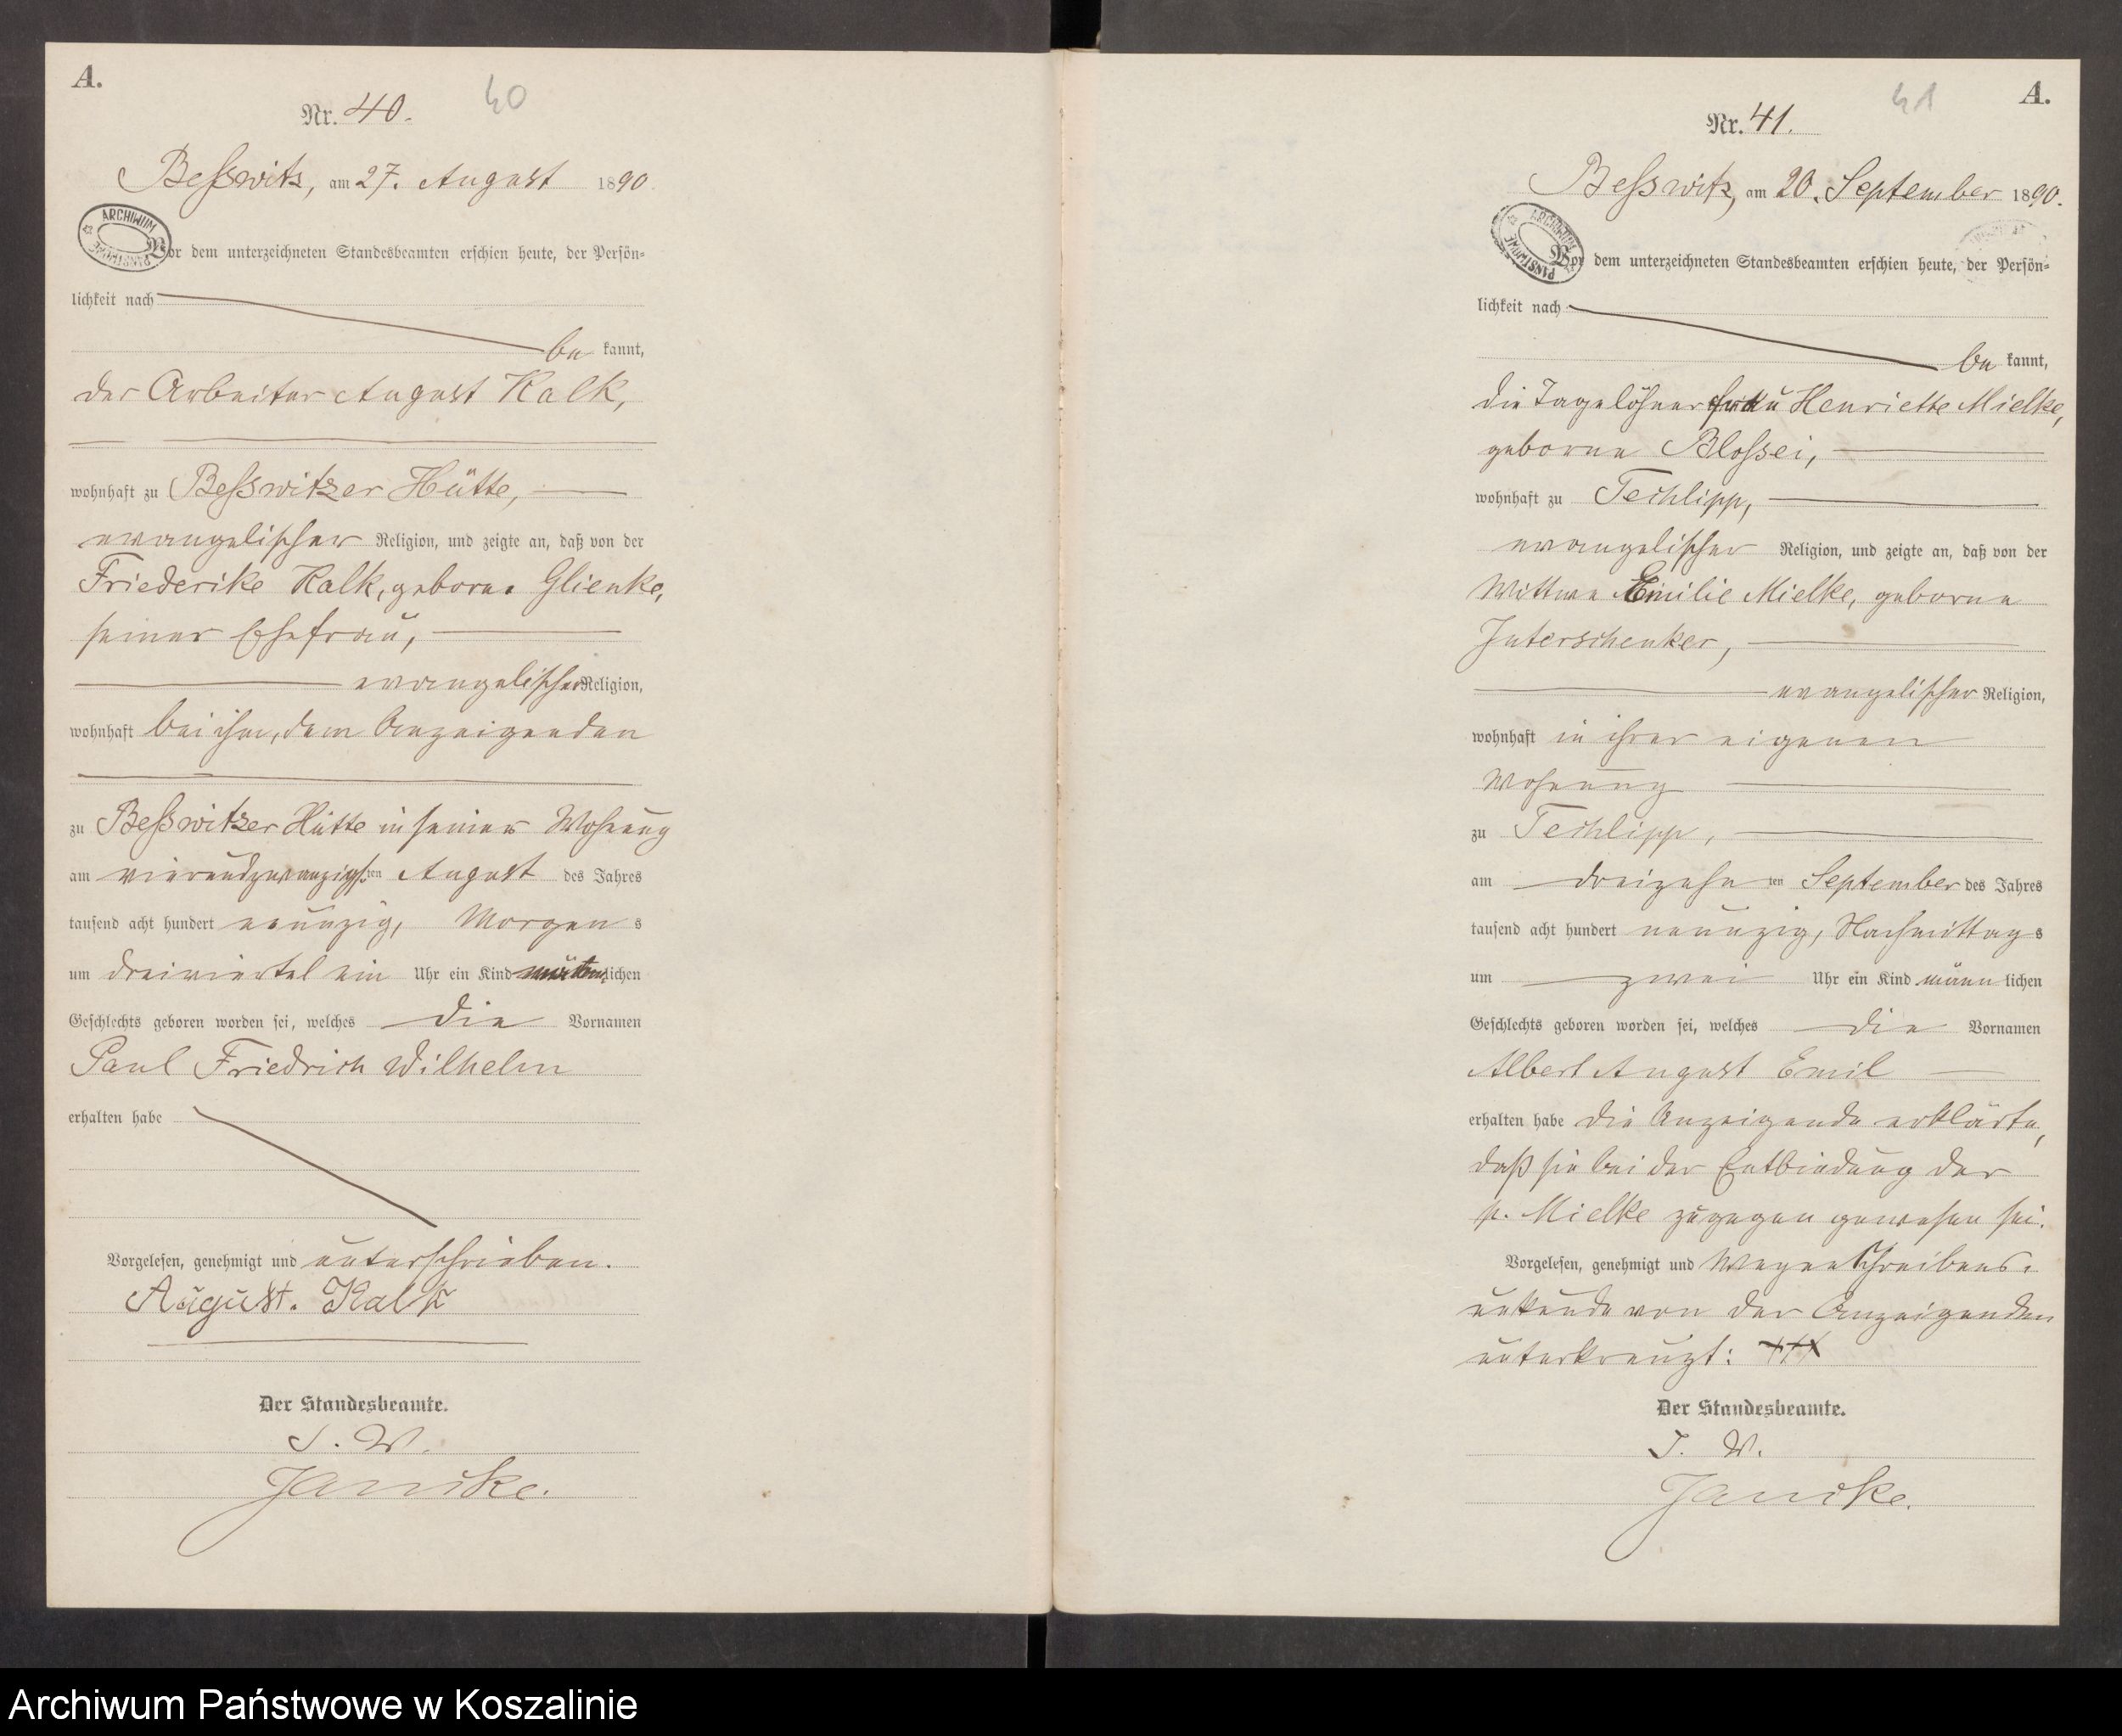 A.
Nr. 40.
40
Beßswitz, am 27. August 1890
ARCHIWUM PAŃSTWOWE
Vor dem unterzeichneten Standesbeamten erschien heute, der Persön-
lichkeit nach
be kannt,
der Arbeiter August Kalk,
wohnhaft zu Beßswitzer Hütte,
evangelischer Religion, und zeigte an, daß von der
Friederike Kalk, geborne Glienke,
seiner Ehefrau,
evangelischer Religion,
wohnhaft bei ihm, dem Anzeigenden
zu Beßswitzer Hütte in seiner Wohnung
am vierundzwanzigsten August des Jahres
tausend acht hundert neunzig, Morgens
um dreiviertel ein Uhr ein Kind männlichen
Geschlechts geboren worden sei, welches die Vornamen
Paul Friedrich Wilhelm
erhalten habe
Vorgelesen, genehmigt und unterschrieben.
August. Kalk
Der Standesbeamte.
J. V.
Janicke.
A.
Nr. 41.
41
Beßswitz, am 20. September 1890.
ARCHIWUM PAŃSTWOWE
Vor dem unterzeichneten Standesbeamten erschien heute, der Persön-
lichkeit nach
be kannt,
die Tagelöhnerfrau Henriette Mielke,
geborne Bloßei,
wohnhaft zu Techlipp,
evangelischer Religion, und zeigte an, daß von der
Wittwe Emilie Mielke, geborne
Interschenker,
evangelischer Religion,
wohnhaft in ihrer eigenen
Wohnung
zu Techlipp,
am dreizehnten September des Jahres
tausend acht hundert neunzig, Nachmittags
um zwei Uhr ein Kind männlichen
Geschlechts geboren worden sei, welches die Vornamen
Albert August Emil
erhalten habe die Anzeigende erklärte,
daß sie bei der Entbindung der
p. Mielke zugegen gewesen sei.
Vorgelesen, genehmigt und Wegen Schreibens-
unkunde von der Anzeigenden
unterkreuzt: +++
Der Standesbeamte.
J. V.
Janicke.
Archiwum Państwowe w Koszalinie